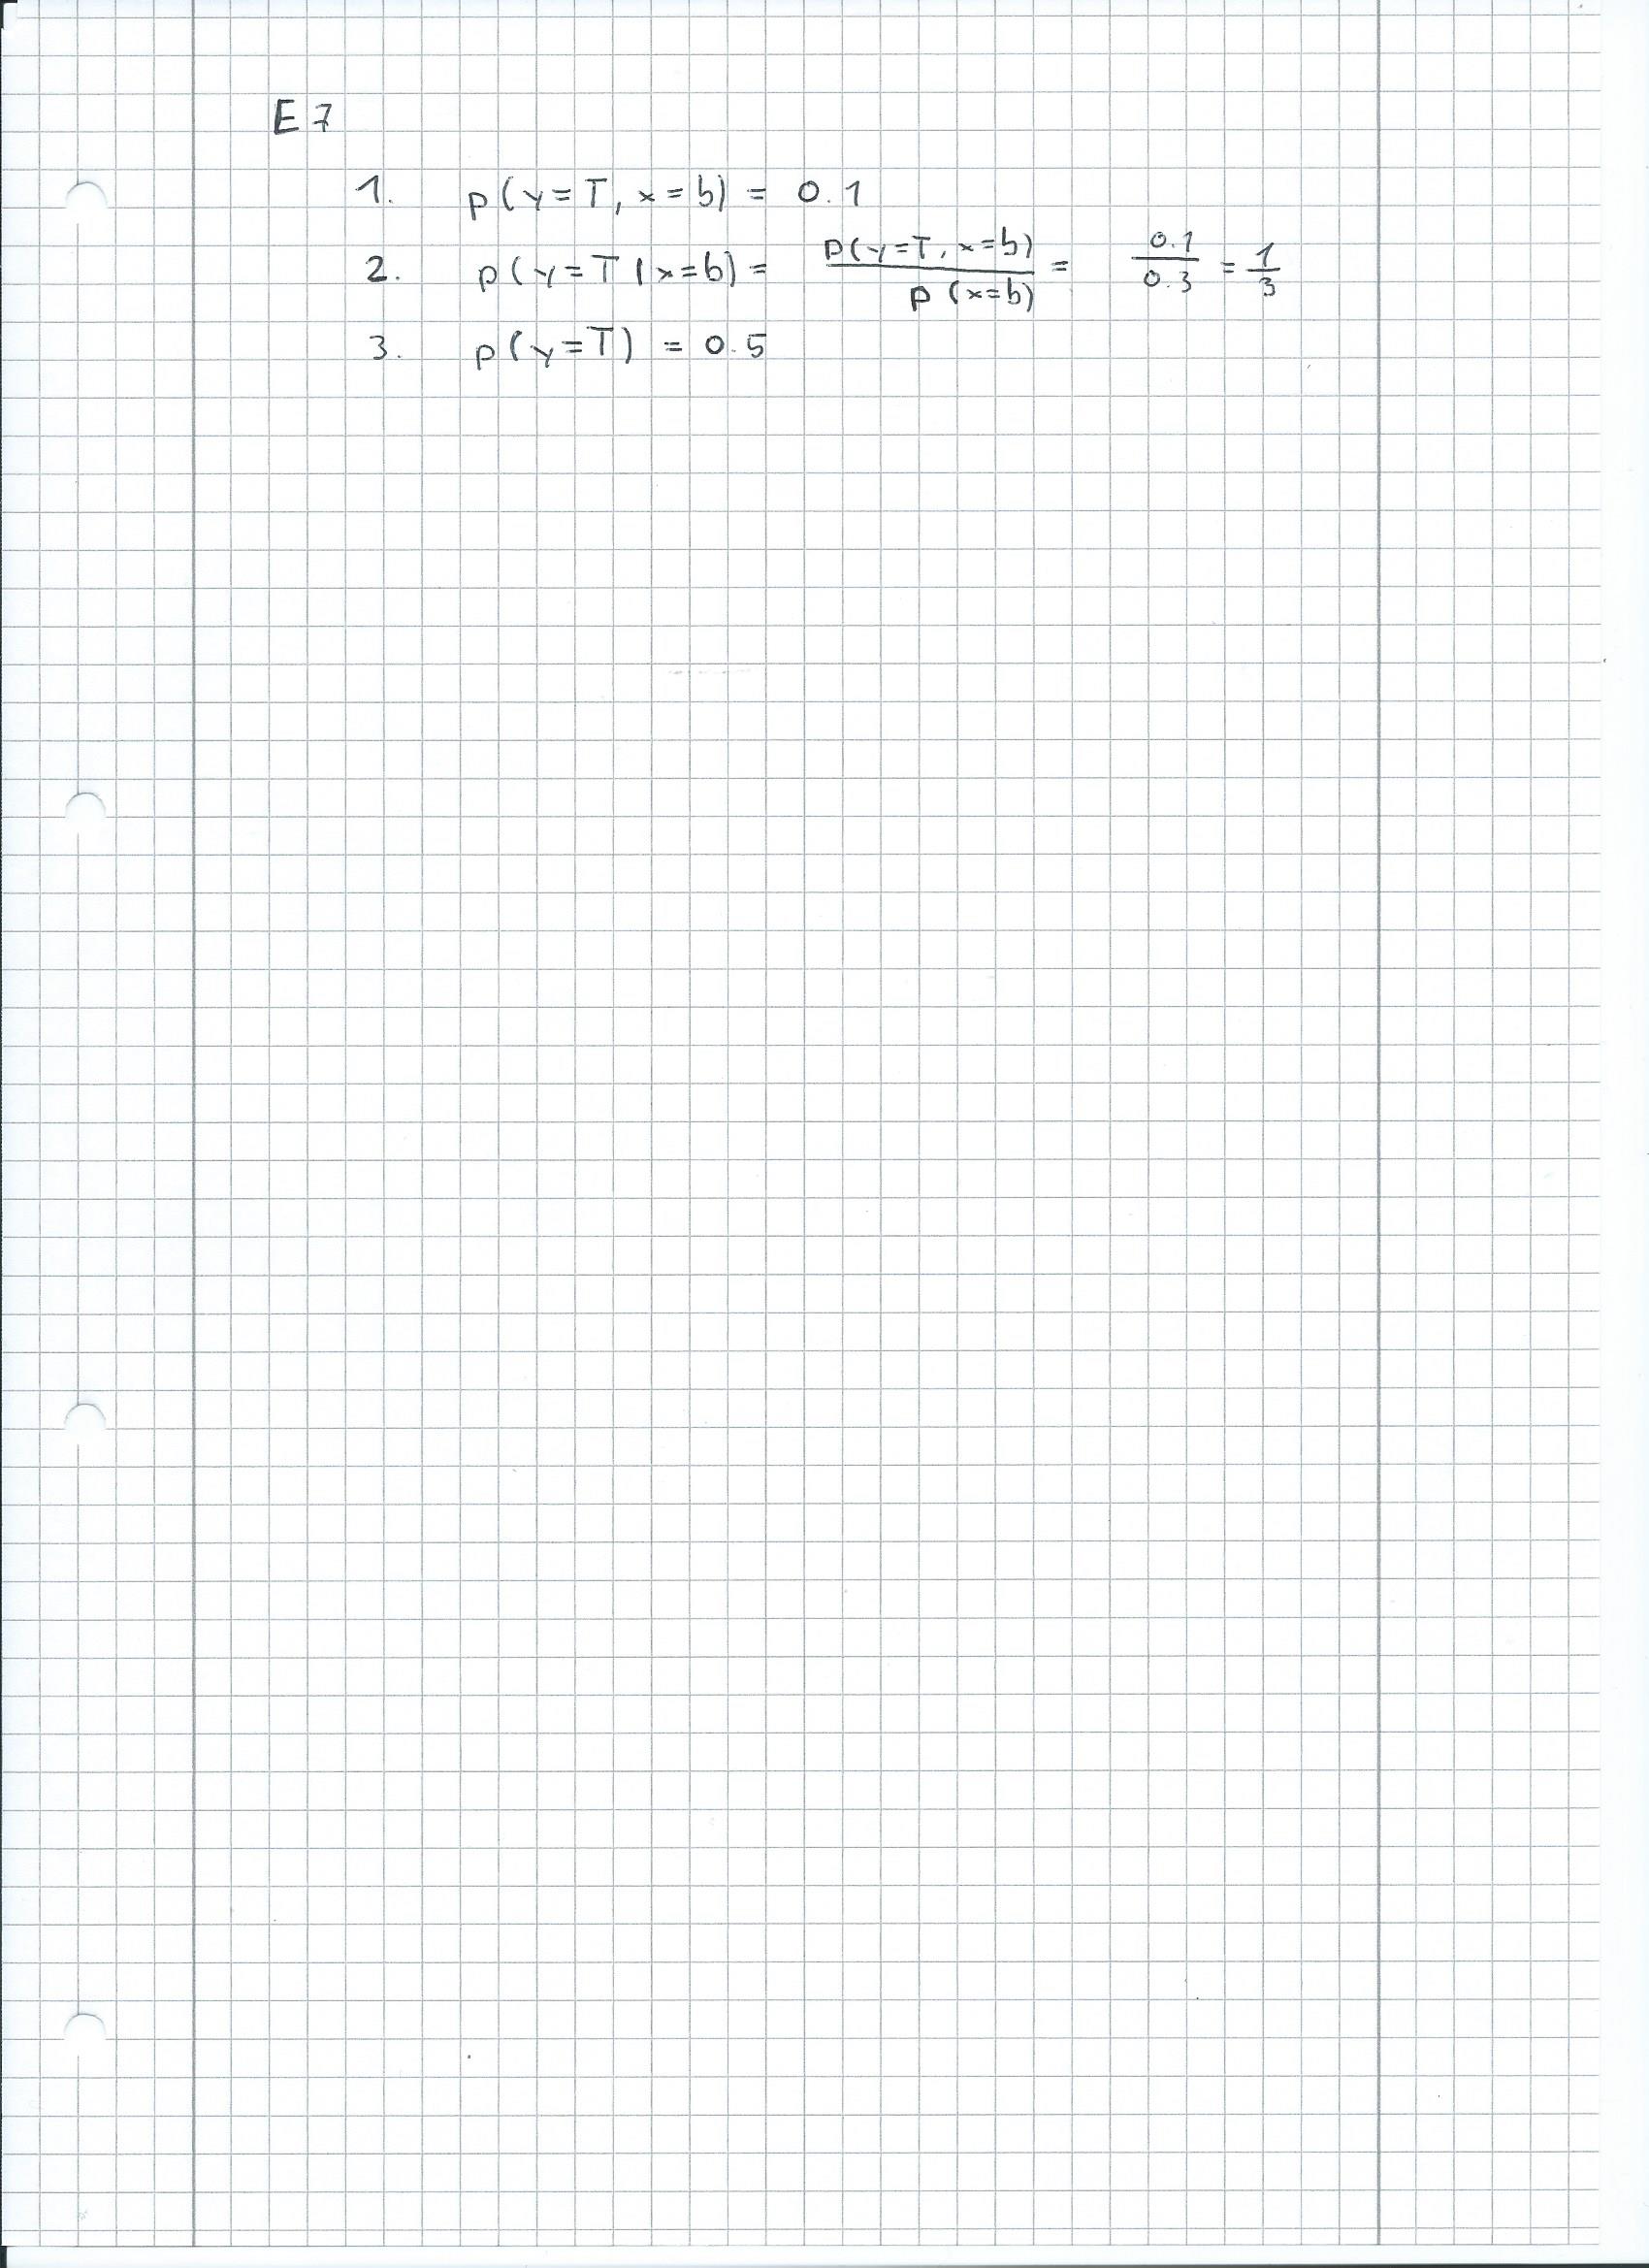 E7
1. p(y=T, x=b) = 0.1
2. p(y=T|x=b) = p(y=T, x=b) / p(x=b) = 0.1 / 0.3 = 1/3
3. p(y=T) = 0.5